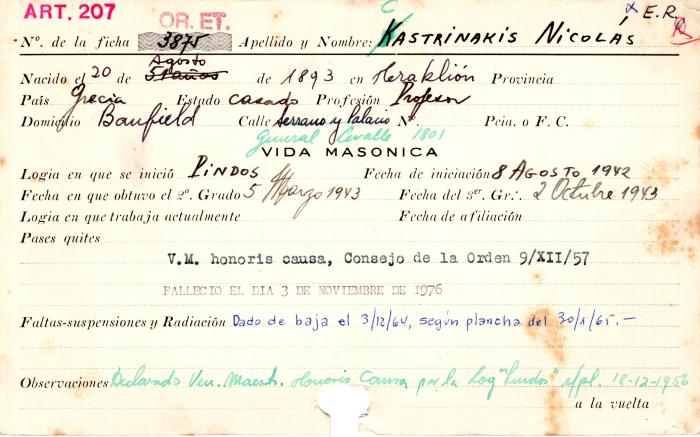 ART. 207
OR. ET.
C
x E.R.
Nº. de la ficha 3875 Apellido y Nombre: KASTRINAKIS NICOLÁS
Agosto
Nacido el 20 de 51 años de 1893 en Heraklión Provincia
País Grecia Estado casado Profesión Profesor
Domicilio Banfield Calle Serrano y Palacio Nº. Pcia. o F. C.
General Levalle 1801
VIDA MASONICA
Logia en que se inició PINDOS Fecha de iniciación 8 AGOSTO 1942
Fecha en que obtuvo el 2º. Grado 5 Marzo 1943 Fecha del 3er. Gr. 2 Octubre 1943
Logia en que trabaja actualmente Fecha de afiliación
Pases quites
V.M. honoris causa, Consejo de la Orden 9/XII/57
FALLECIO EL DIA 3 DE NOVIEMBRE DE 1976
Faltas-suspensiones y Radiación Dado de baja el 3/12/64, según plancha del 30/1/65.-
Observaciones Declarado Ven. Maest. Honoris Causa por la Log "Pindos" s/pl. 18-12-1956
a la vuelta